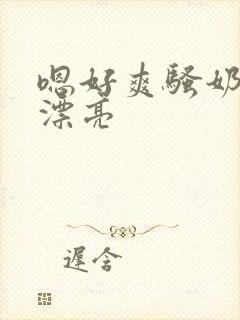 嗯好爽骚奶
漂亮
遲含